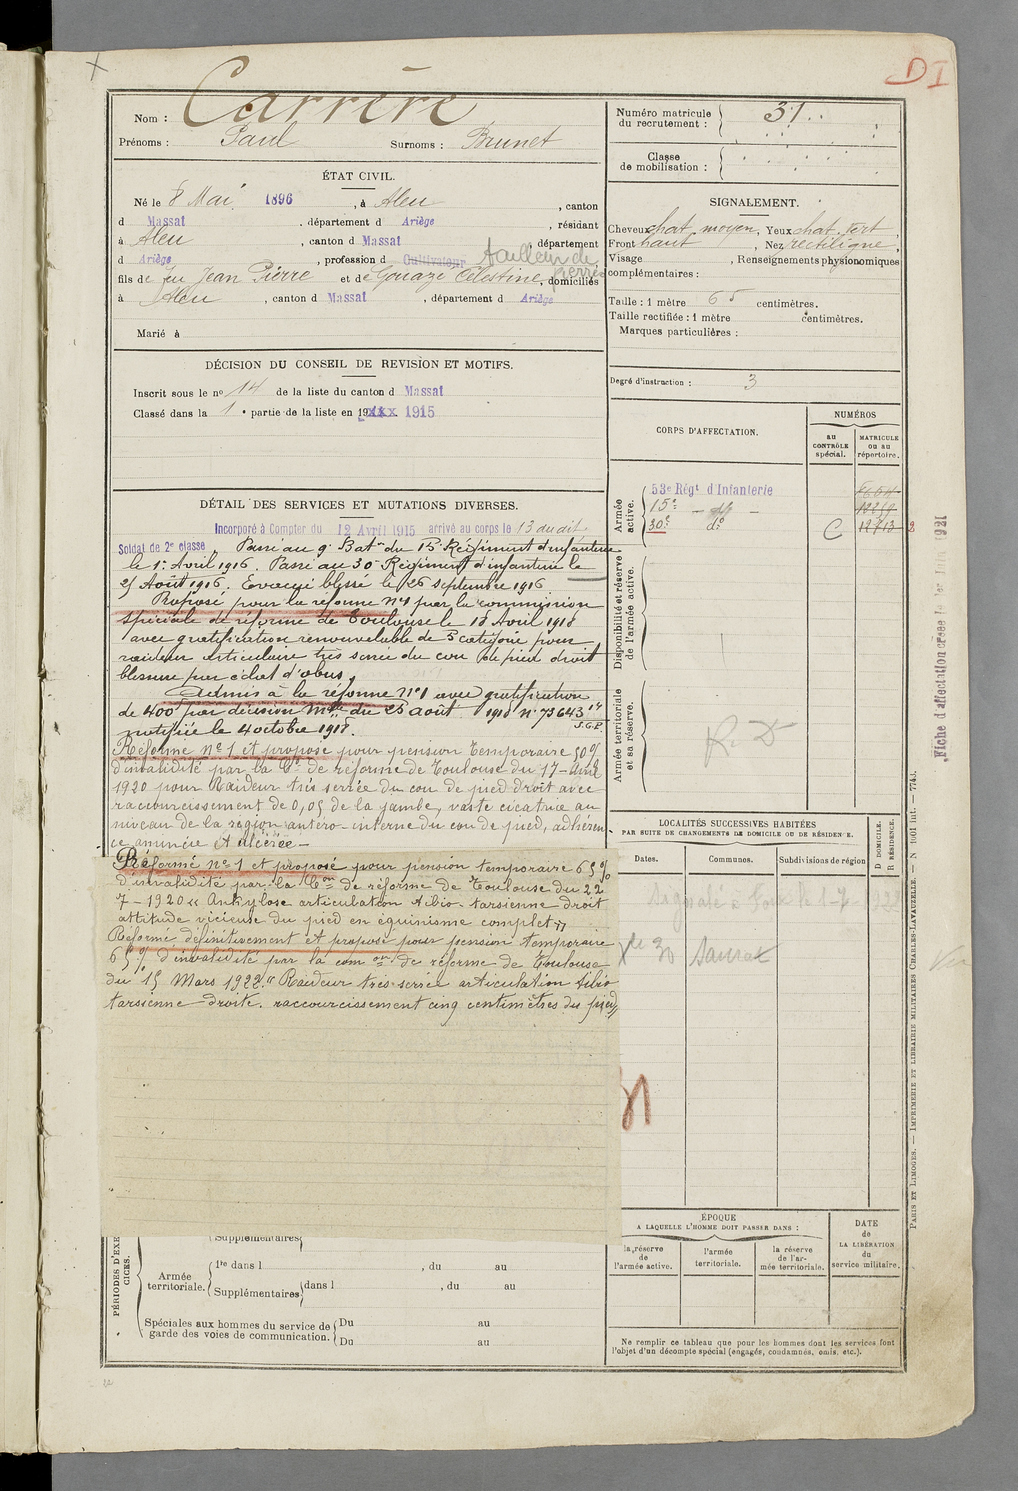 D I
Nom : Carrère
Prénoms : Paul Surnoms : Brunet
Numéro matricule
du recrutement : 31
Classe
de mobilisation :
ÉTAT CIVIL.
Né le 8 Mai 1896, à Aleu, canton
d Massat, département d Ariège, résidant
à Aleu, canton d Massat, département
d Ariège, profession d Cultivateur tailleur de pierre
fils de feu Jean Pierre et de Gouaze Célestine, domiciliés
à Aleu, canton d Massat, département d Ariège
Marié à
SIGNALEMENT.
Cheveux chat. moyen, Yeux chat. vert,
Front haut, Nez rectiligne,
Visage , Renseignements physionomiques
complémentaires :
Taille : 1 mètre 65 centimètres.
Taille rectifiée : 1 mètre centimètres.
Marques particulières :
Degré d'instruction : 3
DÉCISION DU CONSEIL DE REVISION ET MOTIFS.
Inscrit sous le no 14 de la liste du canton d Massat
Classé dans la 1e partie de la liste en 19xxx 1915
CORPS D'AFFECTATION.
NUMÉROS
au
CONTRÔLE
spécial.
MATRICULE
ou au
répertoire.
Armée
active.
53e Régt d'Infanterie
15e — do —
30e do C 12713
Disponibilité et réserve
de l'armée active.
Armée territoriale
et sa réserve.
R. D
DÉTAIL DES SERVICES ET MUTATIONS DIVERSES.
Incorporé à Compter du 12 Avril 1915 arrivé au corps le 13 du dit
Soldat de 2e classe, Passé au 9e Baton du 15e Régiment d'infanterie
le 1er Avril 1916. Passé au 30e Régiment d'infanterie le
25 Août 1916. Evacué blessé le 26 septembre 1916
Proposé pour la réforme No1 par la commission
spéciale de réforme de Toulouse le 18 Avril 1918
avec gratification renouvelable de 5 catégorie pour
raideur articulaire très serrée du cou de pied droit
blessure par éclat d'obus,
Admis à la réforme No1 avec gratification
de 400f par décision Mlle du 25 août 1918 no 73643
notifiée le 4 octobre 1918.
Réformé no 1 et proposé pour pension temporaire 50%
d'invalidité par la Con de réforme de Toulouse du 17 Avril
1920 pour Raideur très serrée du cou de pied droit avec
raccourcissement de 0,05 de la jambe, vaste cicatrice au
niveau de la région antéro-interne du cou de pied, adhéren-
te amincie et ulcérée —
Réformé no 1 et proposé pour pension temporaire 65%
d'invalidité par la Con de réforme de Toulouse du 22
7-1920 « Ankylose articulation tibio-tarsienne droit
attitude vicieuse du pied en équinisme complet »
Réformé définitivement et proposé pour pension temporaire
65% d'invalidité par la com on de réforme de Toulouse
du 15 Mars 1922. " Raideur très serrée articulation tibio
tarsienne droite. raccourcissement cinq centimètres du pied "
LOCALITÉS SUCCESSIVES HABITÉES
PAR SUITE DE CHANGEMENTS DE DOMICILE OU DE RÉSIDENCE.
Dates. Communes. Subdivisions de région
D DOMICILE.
R RÉSIDENCE.
Signalé à Foix le 1-7-
ÉPOQUE
A LAQUELLE L'HOMME DOIT PASSER DANS :
la réserve
de
l'armée active.
l'armée
territoriale.
la réserve
de l'ar-
mée territoriale.
DATE
de
LA LIBÉRATION
du
service militaire.
Ne remplir ce tableau que pour les hommes dont les services font
l'objet d'un décompte spécial (engagés, condamnés, omis, etc.).
PÉRIODES D'EXER-
CICES.
Supplémentaires
Armée
territoriale.
1re dans l , du au
Supplémentaires dans l , du au
Spéciales aux hommes du service de
garde des voies de communication.
Du au
Du au
Fiche d'affectation créée le 1er Juin 1921
PARIS ET LIMOGES. — IMPRIMERIE ET LIBRAIRIE MILITAIRES CHARLES-LAVAUZELLE. — N° 1001 int. — 774J.